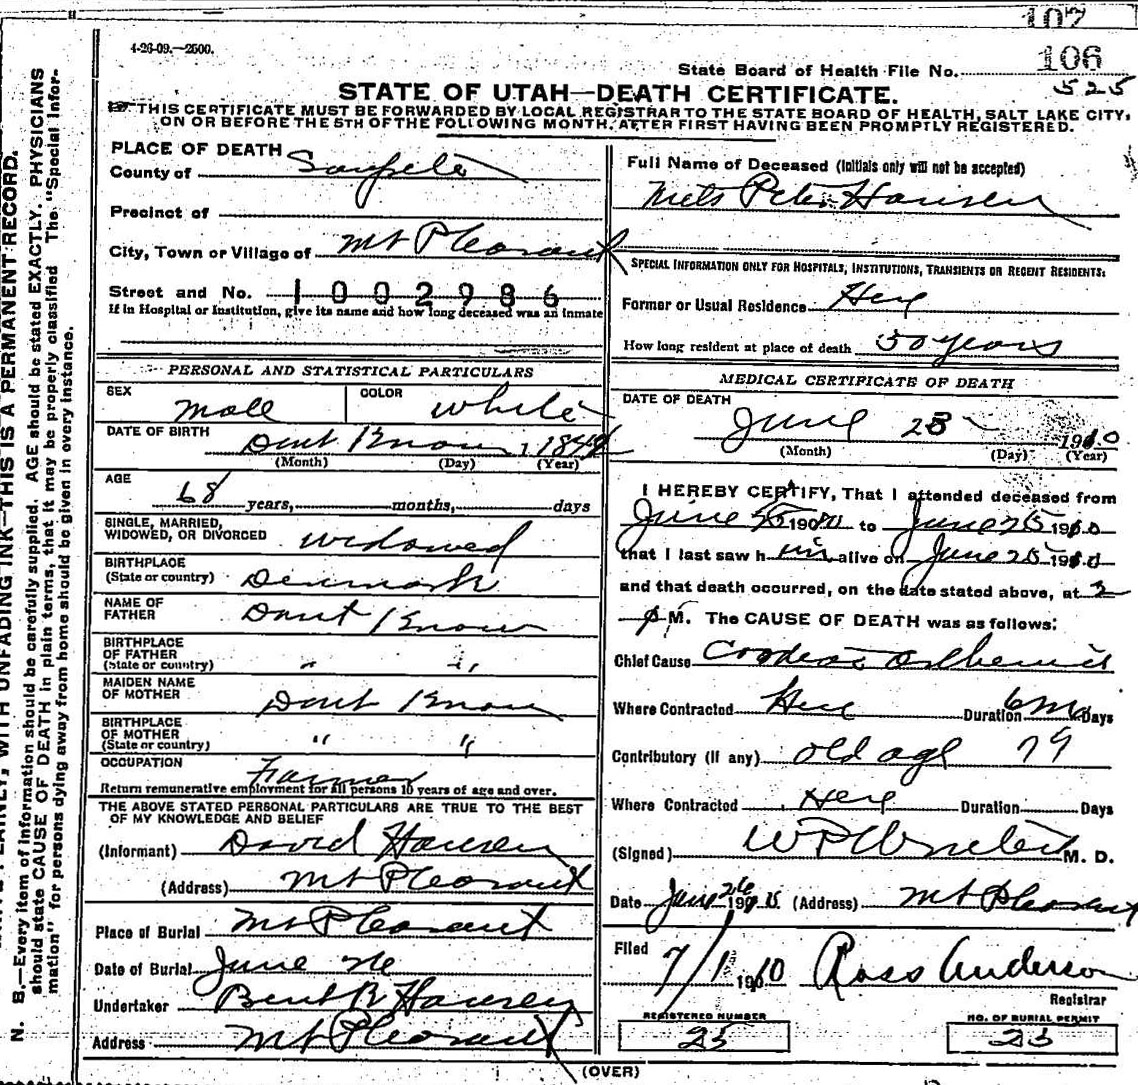 107
4-26-09.—2500.
State Board of Health File No. 106
525
STATE OF UTAH—DEATH CERTIFICATE.
THIS CERTIFICATE MUST BE FORWARDED BY LOCAL REGISTRAR TO THE STATE BOARD OF HEALTH, SALT LAKE CITY,
ON OR BEFORE THE 5TH OF THE FOLLOWING MONTH, AFTER FIRST HAVING BEEN PROMPTLY REGISTERED.
N. B.—Every item of information should be carefully supplied. AGE should be stated EXACTLY. PHYSICIANS
should state CAUSE OF DEATH in plain terms, that it may be properly classified. The "Special Infor-
mation" for persons dying away from home should be given in every instance.
PLAINLY, WITH UNFADING INK—THIS IS A PERMANENT RECORD.
PLACE OF DEATH
County of Sanpete
Precinct of
City, Town or Village of Mt Pleasant
Street and No. 1002986
If in Hospital or Institution, give its name and how long deceased was an inmate
PERSONAL AND STATISTICAL PARTICULARS
SEX Male COLOR White
DATE OF BIRTH Dont Know, 184
(Month) (Day) (Year)
AGE
68 years, months, days
SINGLE, MARRIED,
WIDOWED, OR DIVORCED Widowed
BIRTHPLACE
(State or country) Denmark
NAME OF
FATHER Dont Know
BIRTHPLACE
OF FATHER
(State or country) " "
MAIDEN NAME
OF MOTHER Dont Know
BIRTHPLACE
OF MOTHER
(State or country) " "
OCCUPATION Farmer
Return remunerative employment for all persons 10 years of age and over.
THE ABOVE STATED PERSONAL PARTICULARS ARE TRUE TO THE BEST
OF MY KNOWLEDGE AND BELIEF
(Informant) David Hansen
(Address) Mt Pleasant
Place of Burial Mt Pleasant
Date of Burial June 26
Undertaker Bent R Hansen
Address Mt Pleasant
Full Name of Deceased (Initials only will not be accepted)
Niels Peter Hansen
SPECIAL INFORMATION ONLY FOR HOSPITALS, INSTITUTIONS, TRANSIENTS OR RECENT RESIDENTS:
Former or Usual Residence Here
How long resident at place of death 50 years
MEDICAL CERTIFICATE OF DEATH
DATE OF DEATH
June 25 1910
(Month) (Day) (Year)
I HEREBY CERTIFY, That I attended deceased from
June 190 to June 25 1910
that I last saw him alive on June 25 1910
and that death occurred, on the date stated above, at 2
P M. The CAUSE OF DEATH was as follows:
Chief Cause
Where Contracted Here Duration 6 mo Days
Contributory (if any) old age 79
Where Contracted Here Duration Days
(Signed) M. D.
Date June 26 190 (Address) Mt Pleasant
Filed 7/1 1910 Ross Anderson
Registrar
REGISTERED NUMBER
25
NO. OF BURIAL PERMIT
23
(OVER)